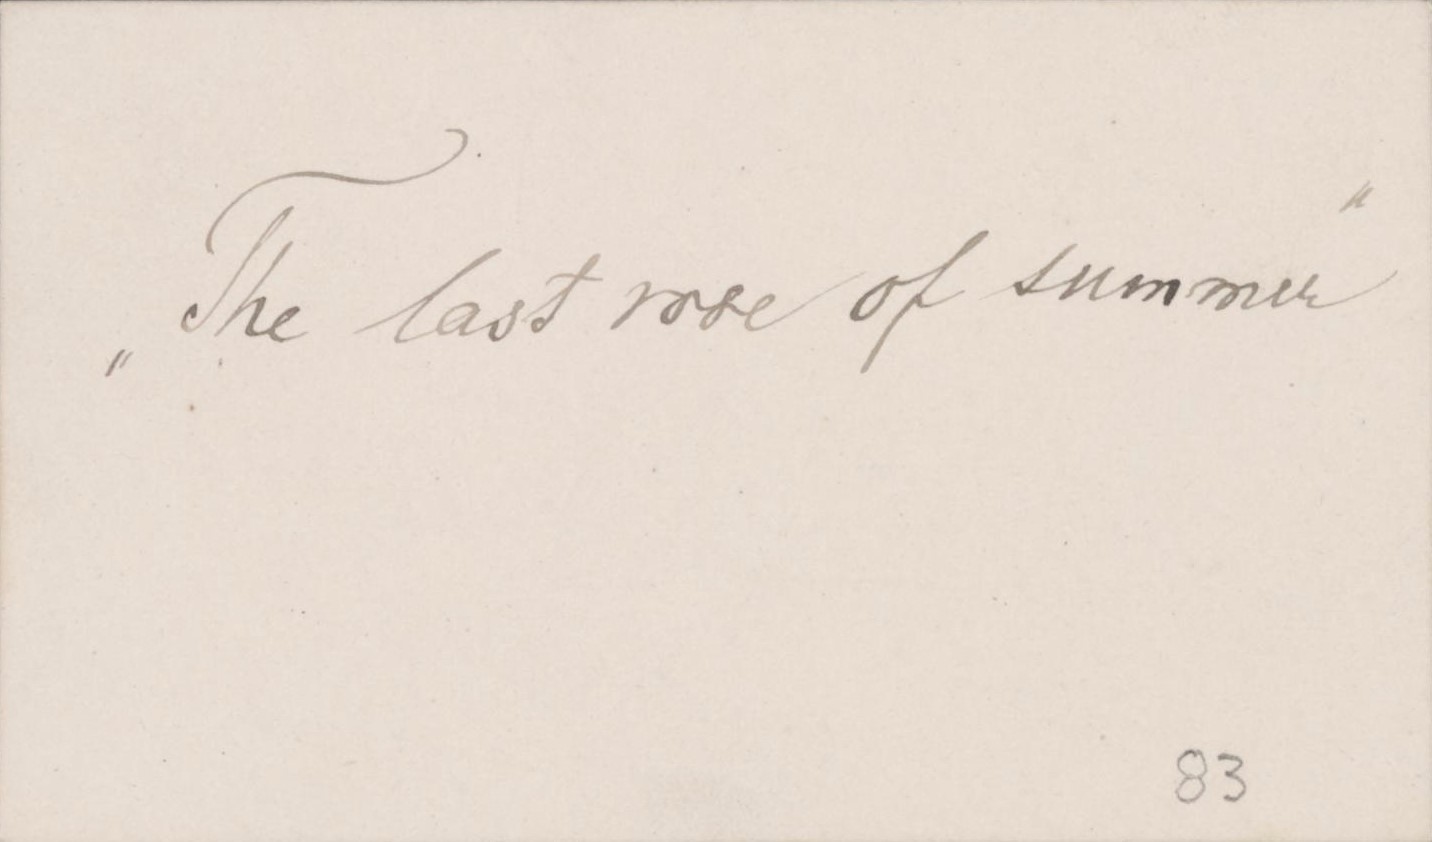 „The last rose of summer"
83